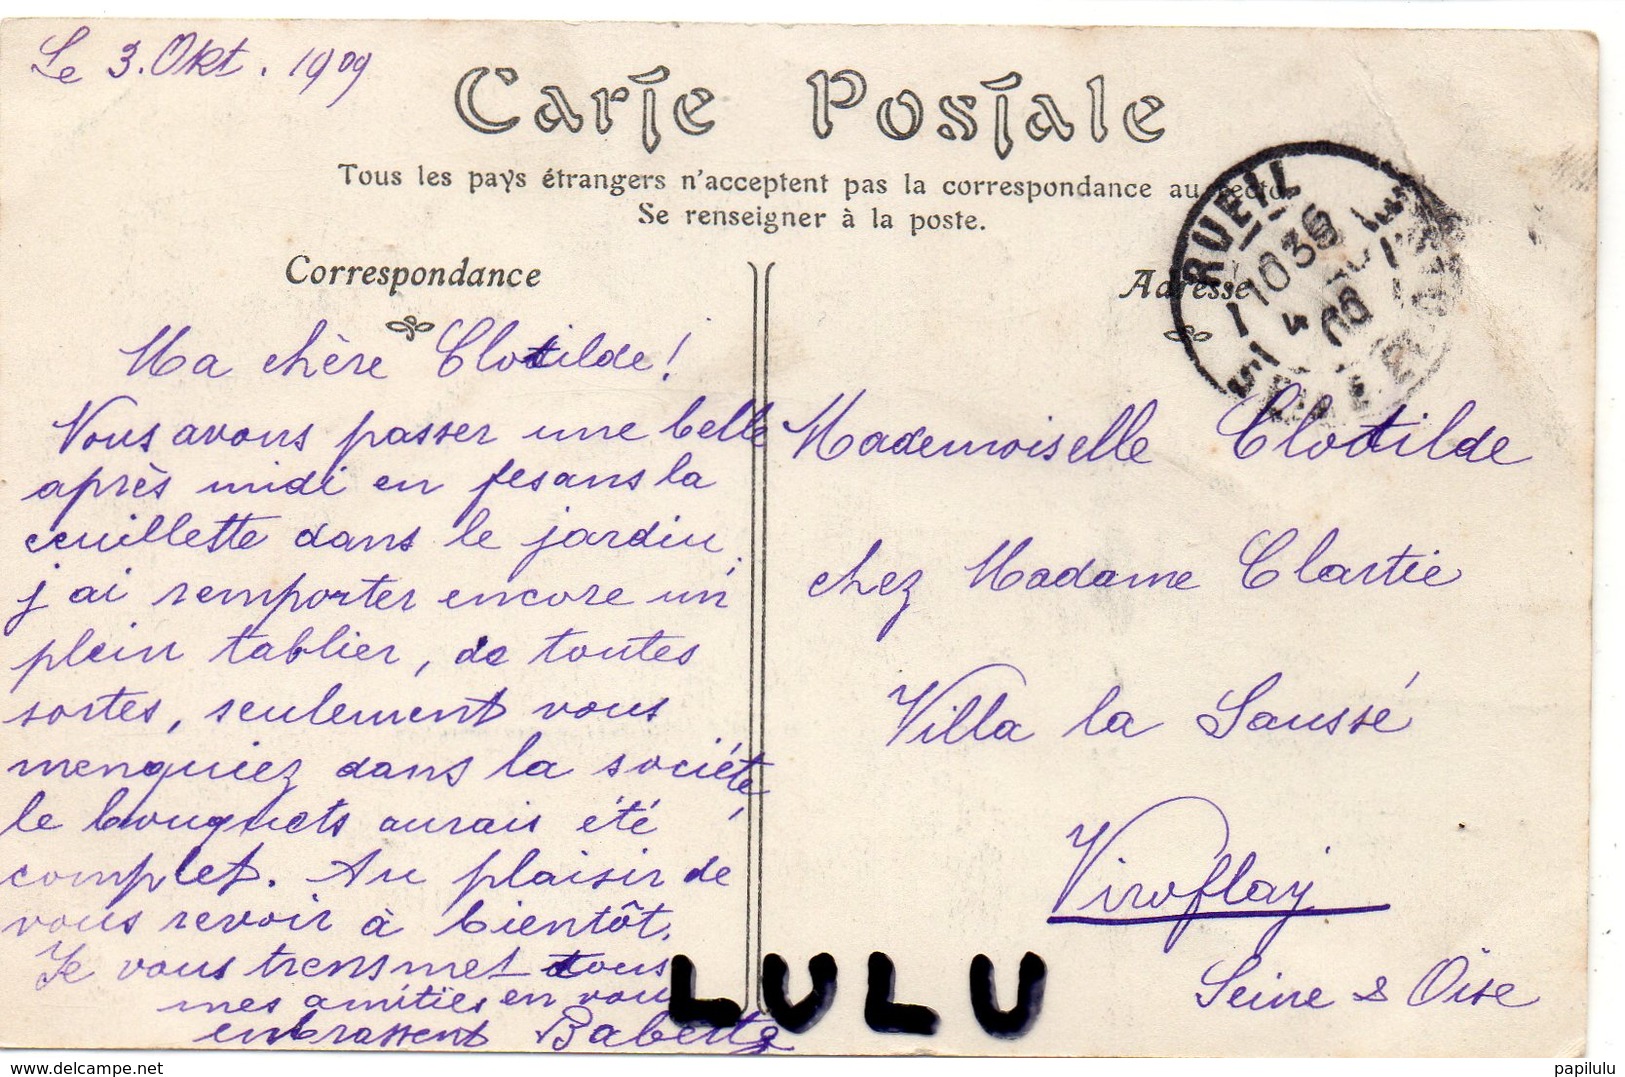 Le 3. Okt. 1909
Carte Postale
Tous les pays étrangers n'acceptent pas la correspondance au recto.
Se renseigner à la poste.
Correspondance
Ma chère Clotilde!
Vous avons passer une belle
après midi en fesans la
ceuillette dans le jardin.
j'ai remporter encore un
plein tablier, de toutes
sortes, seulement vous
menquiez dans la société,
le bouquets aurais été
complet. Au plaisir de
vous revoir à bientôt.
Je vous trensmet tous
mes amitiés en vous
embrassent Babette
Adresse
RUEIL
10 35
4
09
Mademoiselle Clotilde
chez Madame Clartie
Villa la Saussé
Viroflay
Seine & Oise
LULU
www.delcampe.net
papilulu